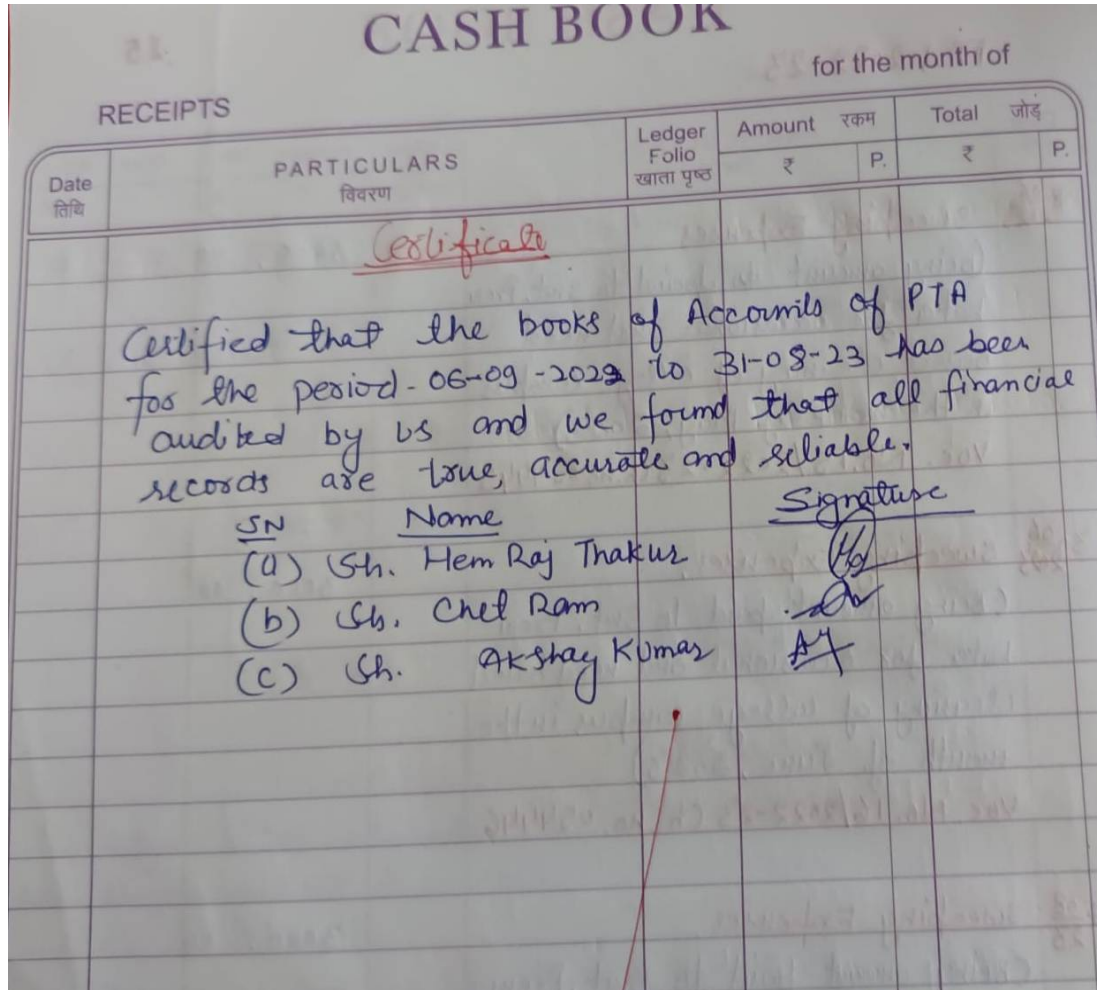 CASH BOOK
for the month of
RECEIPTS
Date
तिथि
PARTICULARS
विवरण
Ledger
Folio
खाता पृष्ठ
Amount रकम
₹ P.
Total जोड़
₹ P.
Certificate
Certified that the books of Accounts of PTA
for the period - 06-09-2022 to 31-08-23 has been
audited by us and we found that all financial
records are true, accurate and reliable.
SN Name Signature
(a) Sh. Hem Raj Thakur
(b) Sh. Chet Ram
(c) Sh. Akshay Kumar